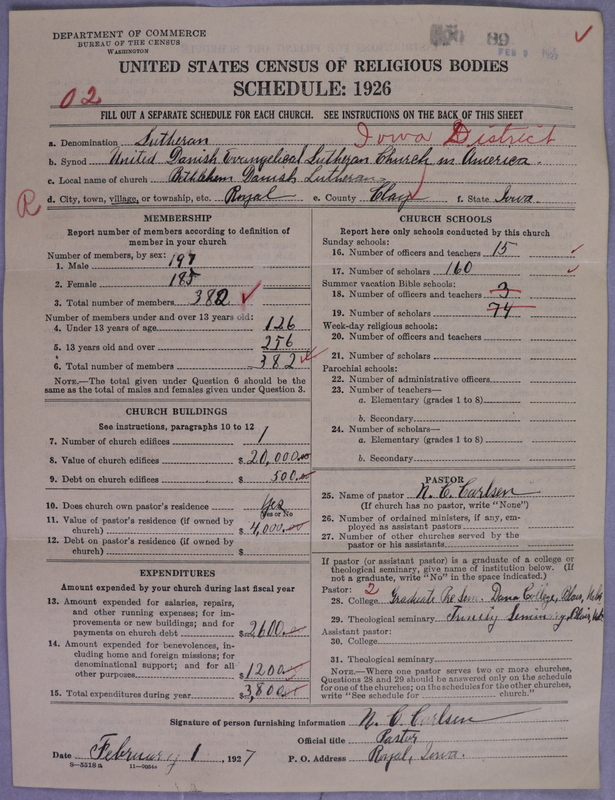 DEPARTMENT OF COMMERCE
BUREAU OF THE CENSUS
WASHINGTON
89
FEB
UNITED STATES CENSUS OF RELIGIOUS BODIES
SCHEDULE: 1926
02
FILL OUT A SEPARATE SCHEDULE FOR EACH CHURCH. SEE INSTRUCTIONS ON THE BACK OF THIS SHEET
Iowa District
a. Denomination Lutheran
b. Synod United Danish Evangelical Lutheran Church in America.
c. Local name of church Bethlehem Danish Lutheran
R
d. City, town, village, or township, etc. Royal e. County Clay f. State Iowa.
MEMBERSHIP
Report number of members according to definition of
member in your church
Number of members, by sex:
1. Male 197
2. Female 185
3. Total number of members 382
Number of members under and over 13 years old:
4. Under 13 years of age 126
5. 13 years old and over 256
6. Total number of members 382
NOTE.—The total given under Question 6 should be the
same as the total of males and females given under Question 3.
CHURCH BUILDINGS
See instructions, paragraphs 10 to 12
7. Number of church edifices 1
8. Value of church edifices $20,000.00
9. Debt on church edifices $500.00
10. Does church own pastor's residence Yes
Yes or No
11. Value of pastor's residence (if owned by
church) $4,000.00
12. Debt on pastor's residence (if owned by
church) $
EXPENDITURES
Amount expended by your church during last fiscal year
13. Amount expended for salaries, repairs,
and other running expenses; for im-
provements or new buildings; and for
payments on church debt $2600.00
14. Amount expended for benevolences, in-
cluding home and foreign missions; for
denominational support; and for all
other purposes $1200.00
15. Total expenditures during year $3,800.00
CHURCH SCHOOLS
Report here only schools conducted by this church
Sunday schools:
16. Number of officers and teachers 15
17. Number of scholars 160
Summer vacation Bible schools:
18. Number of officers and teachers 3
19. Number of scholars 74
Week-day religious schools:
20. Number of officers and teachers
21. Number of scholars
Parochial schools:
22. Number of administrative officers
23. Number of teachers—
a. Elementary (grades 1 to 8)
b. Secondary
24. Number of scholars—
a. Elementary (grades 1 to 8)
b. Secondary
PASTOR
25. Name of pastor N. C. Carlsen
(If church has no pastor, write "None")
26. Number of ordained ministers, if any, em-
ployed as assistant pastors
27. Number of other churches served by the
pastor or his assistants
If pastor (or assistant pastor) is a graduate of a college or
theological seminary, give name of institution below. (If
not a graduate, write "No" in the space indicated.)
Pastor: 2
28. College Graduate Pre Sem. Dana College, Blair, Nebr.
29. Theological seminary Trinity Seminary, Blair, Nebr.
Assistant pastor:
30. College
31. Theological seminary
NOTE.—Where one pastor serves two or more churches,
Questions 28 and 29 should be answered only on the schedule
for one of the churches; on the schedules for the other churches,
write "See schedule for church."
Signature of person furnishing information N. C. Carlsen
Official title Pastor
Date February 1, 1927 P. O. Address Royal, Iowa.
8—5518a